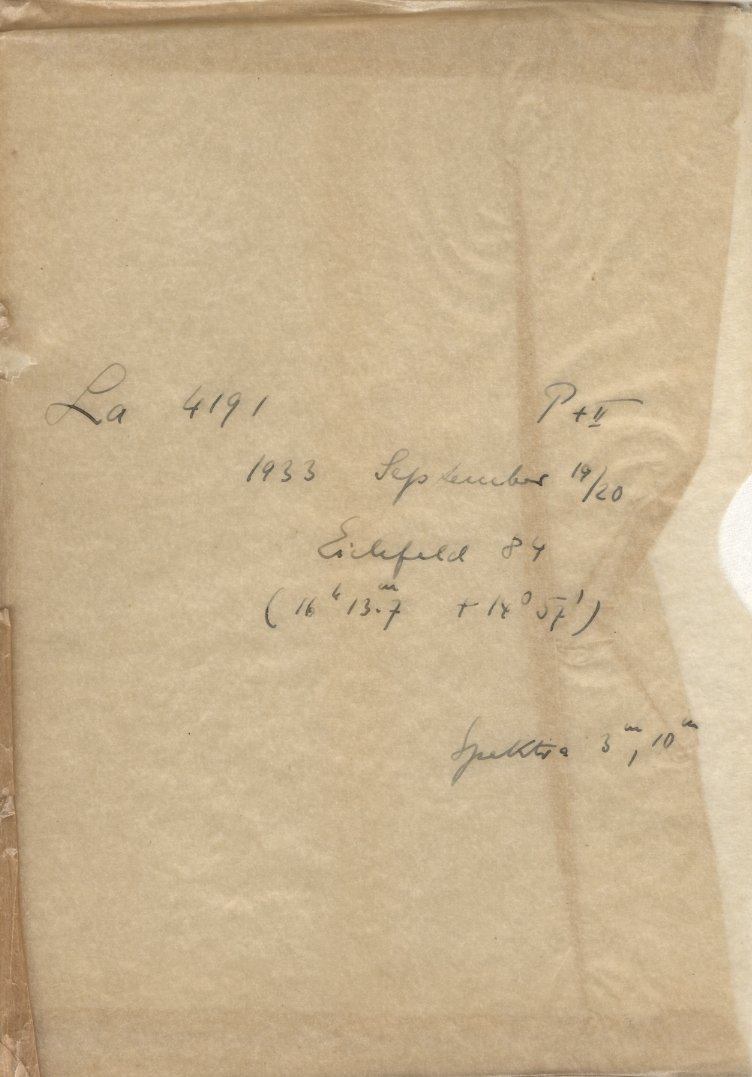 La 4191 P + II
1933 September 19/20
Eichfeld 84
(16ʰ 13.ᵐ7 + 14⁰ 57')
Spektra 3ᵐ, 10ᵐ